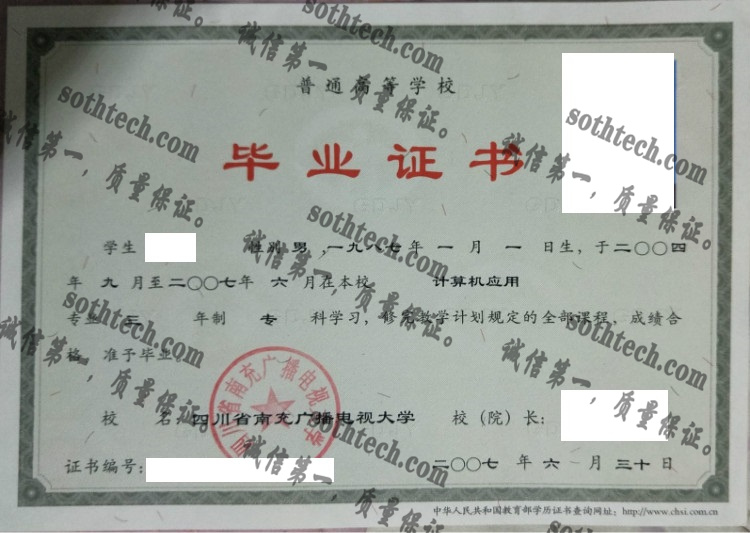 普通高等学校
毕业证书
学生 性别 男 ,一九八七年 一 月 一 日生, 于二〇〇四
年 九 月至二〇〇七年 六 月在本校 计算机应用
专业 三 年制 专 科学习, 修完教学计划规定的全部课程, 成绩合
格, 准予毕业。
校 名: 四川省南充广播电视大学 校(院)长:
证书编号: 二〇〇七 年 六 月 三十 日
中华人民共和国教育部学历证书查询网址: http://www.chsi.com.cn
四川省南充广播电视大学
sothtech.com
诚信第一，质量保证。
sothtech.com
诚信第一，质量保证。
sothtech.com
诚信第一，质量保证。
sothtech.com
诚信第一，质量保证。
sothtech.com
诚信第一，质量保证。
sothtech.com
诚信第一，质量保证。
sothtech.com
诚信第一，质量保证。